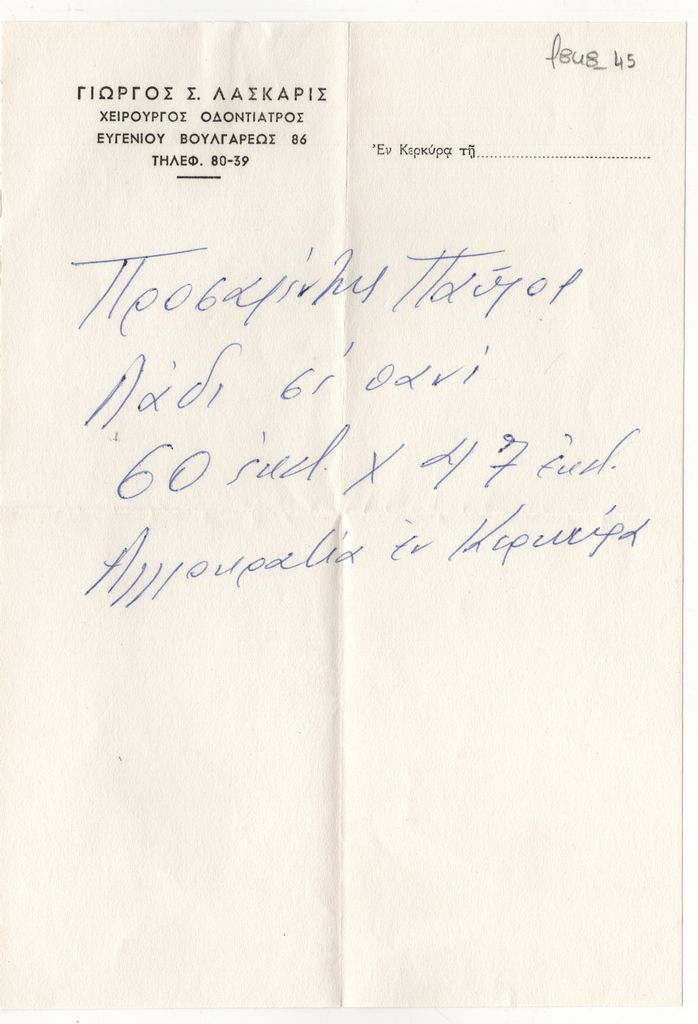 45
ΓΙΩΡΓΟΣ Σ. ΛΑΣΚΑΡΙΣ
ΧΕΙΡΟΥΡΓΟΣ ΟΔΟΝΤΙΑΤΡΟΣ
ΕΥΓΕΝΙΟΥ ΒΟΥΛΓΑΡΕΩΣ 86
ΤΗΛΕΦ. 80-39
Ἐν Κερκύρᾳ τῇ
Προσαλέντης Παῦλος
Λάδι σέ πανί
60 ἑκατ. Χ 47 ἑκατ.
Ἀγγλοκρατία ἐν Κερκύρα